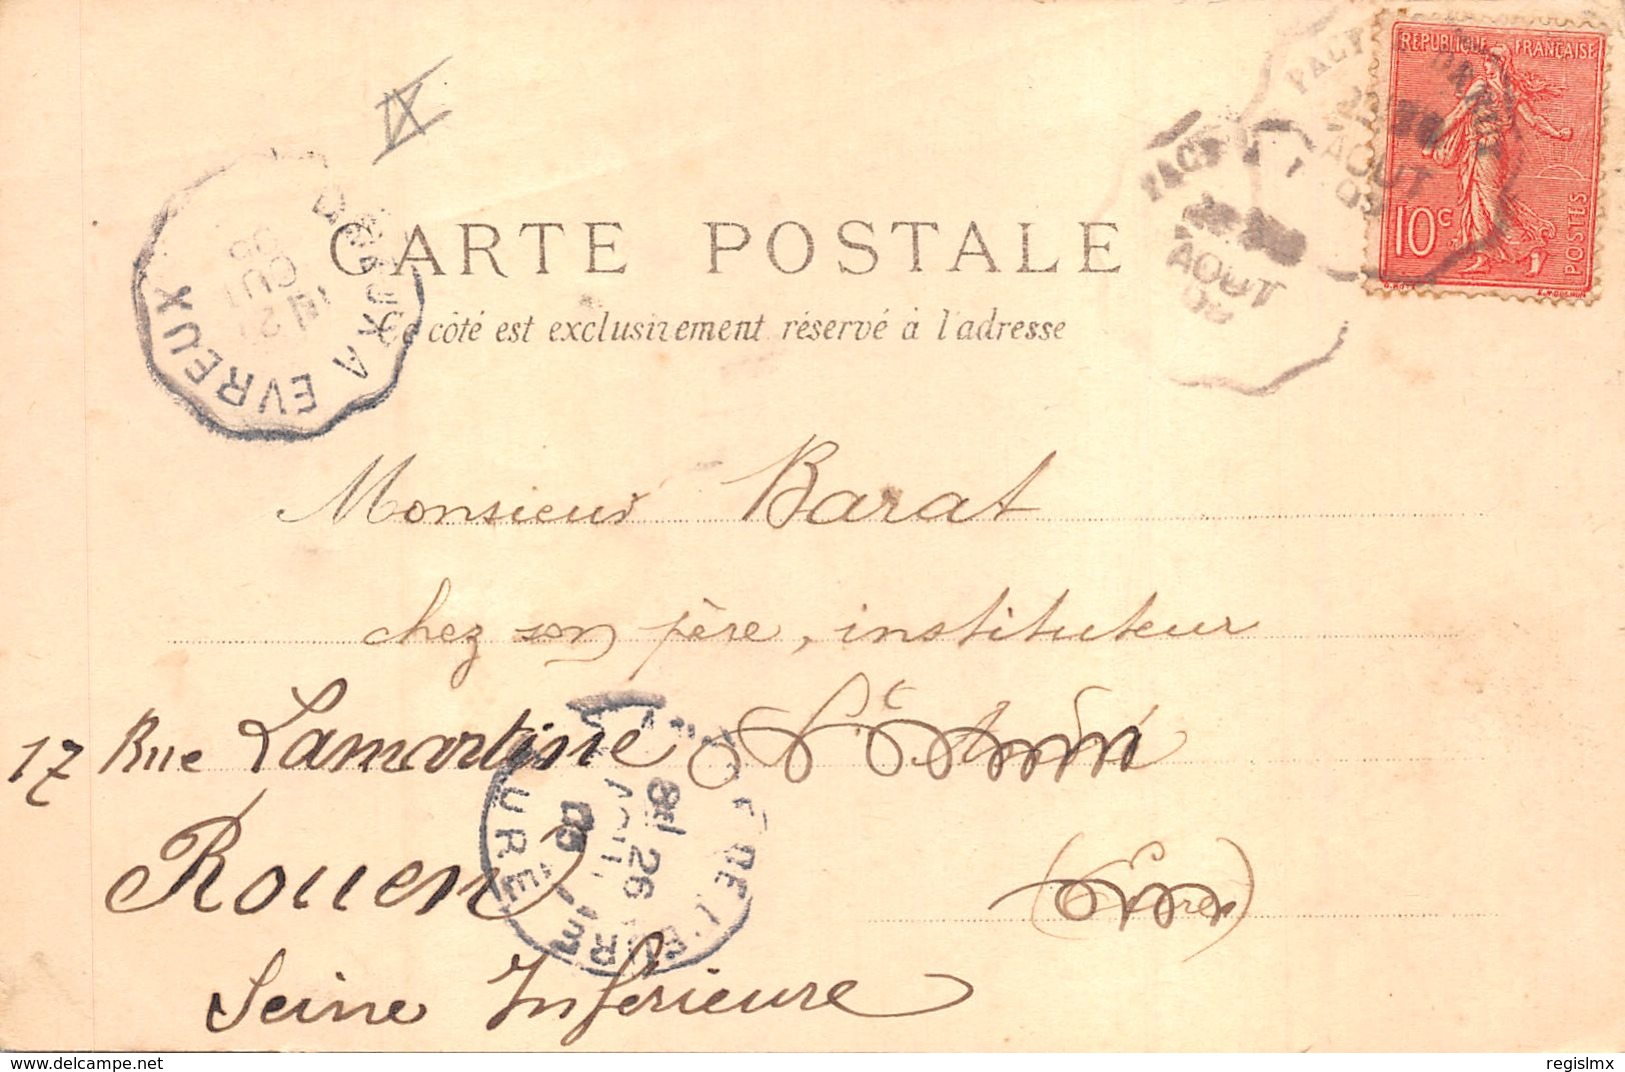 IX
REPUBLIQUE FRANÇAISE
10c
POSTES
PACY
AOUT
05
PACY
AOUT
05
DREUX A EVREUX
CARTE POSTALE
Ce côté est exclusivement réservé à l'adresse
Monsieur Barat
chez son père, instituteur
17 Rue Lamartine
Rouen
(Eure)
Seine Inférieure
8E 26
AOUT
05
EURE
www.delcampe.net
regislmx